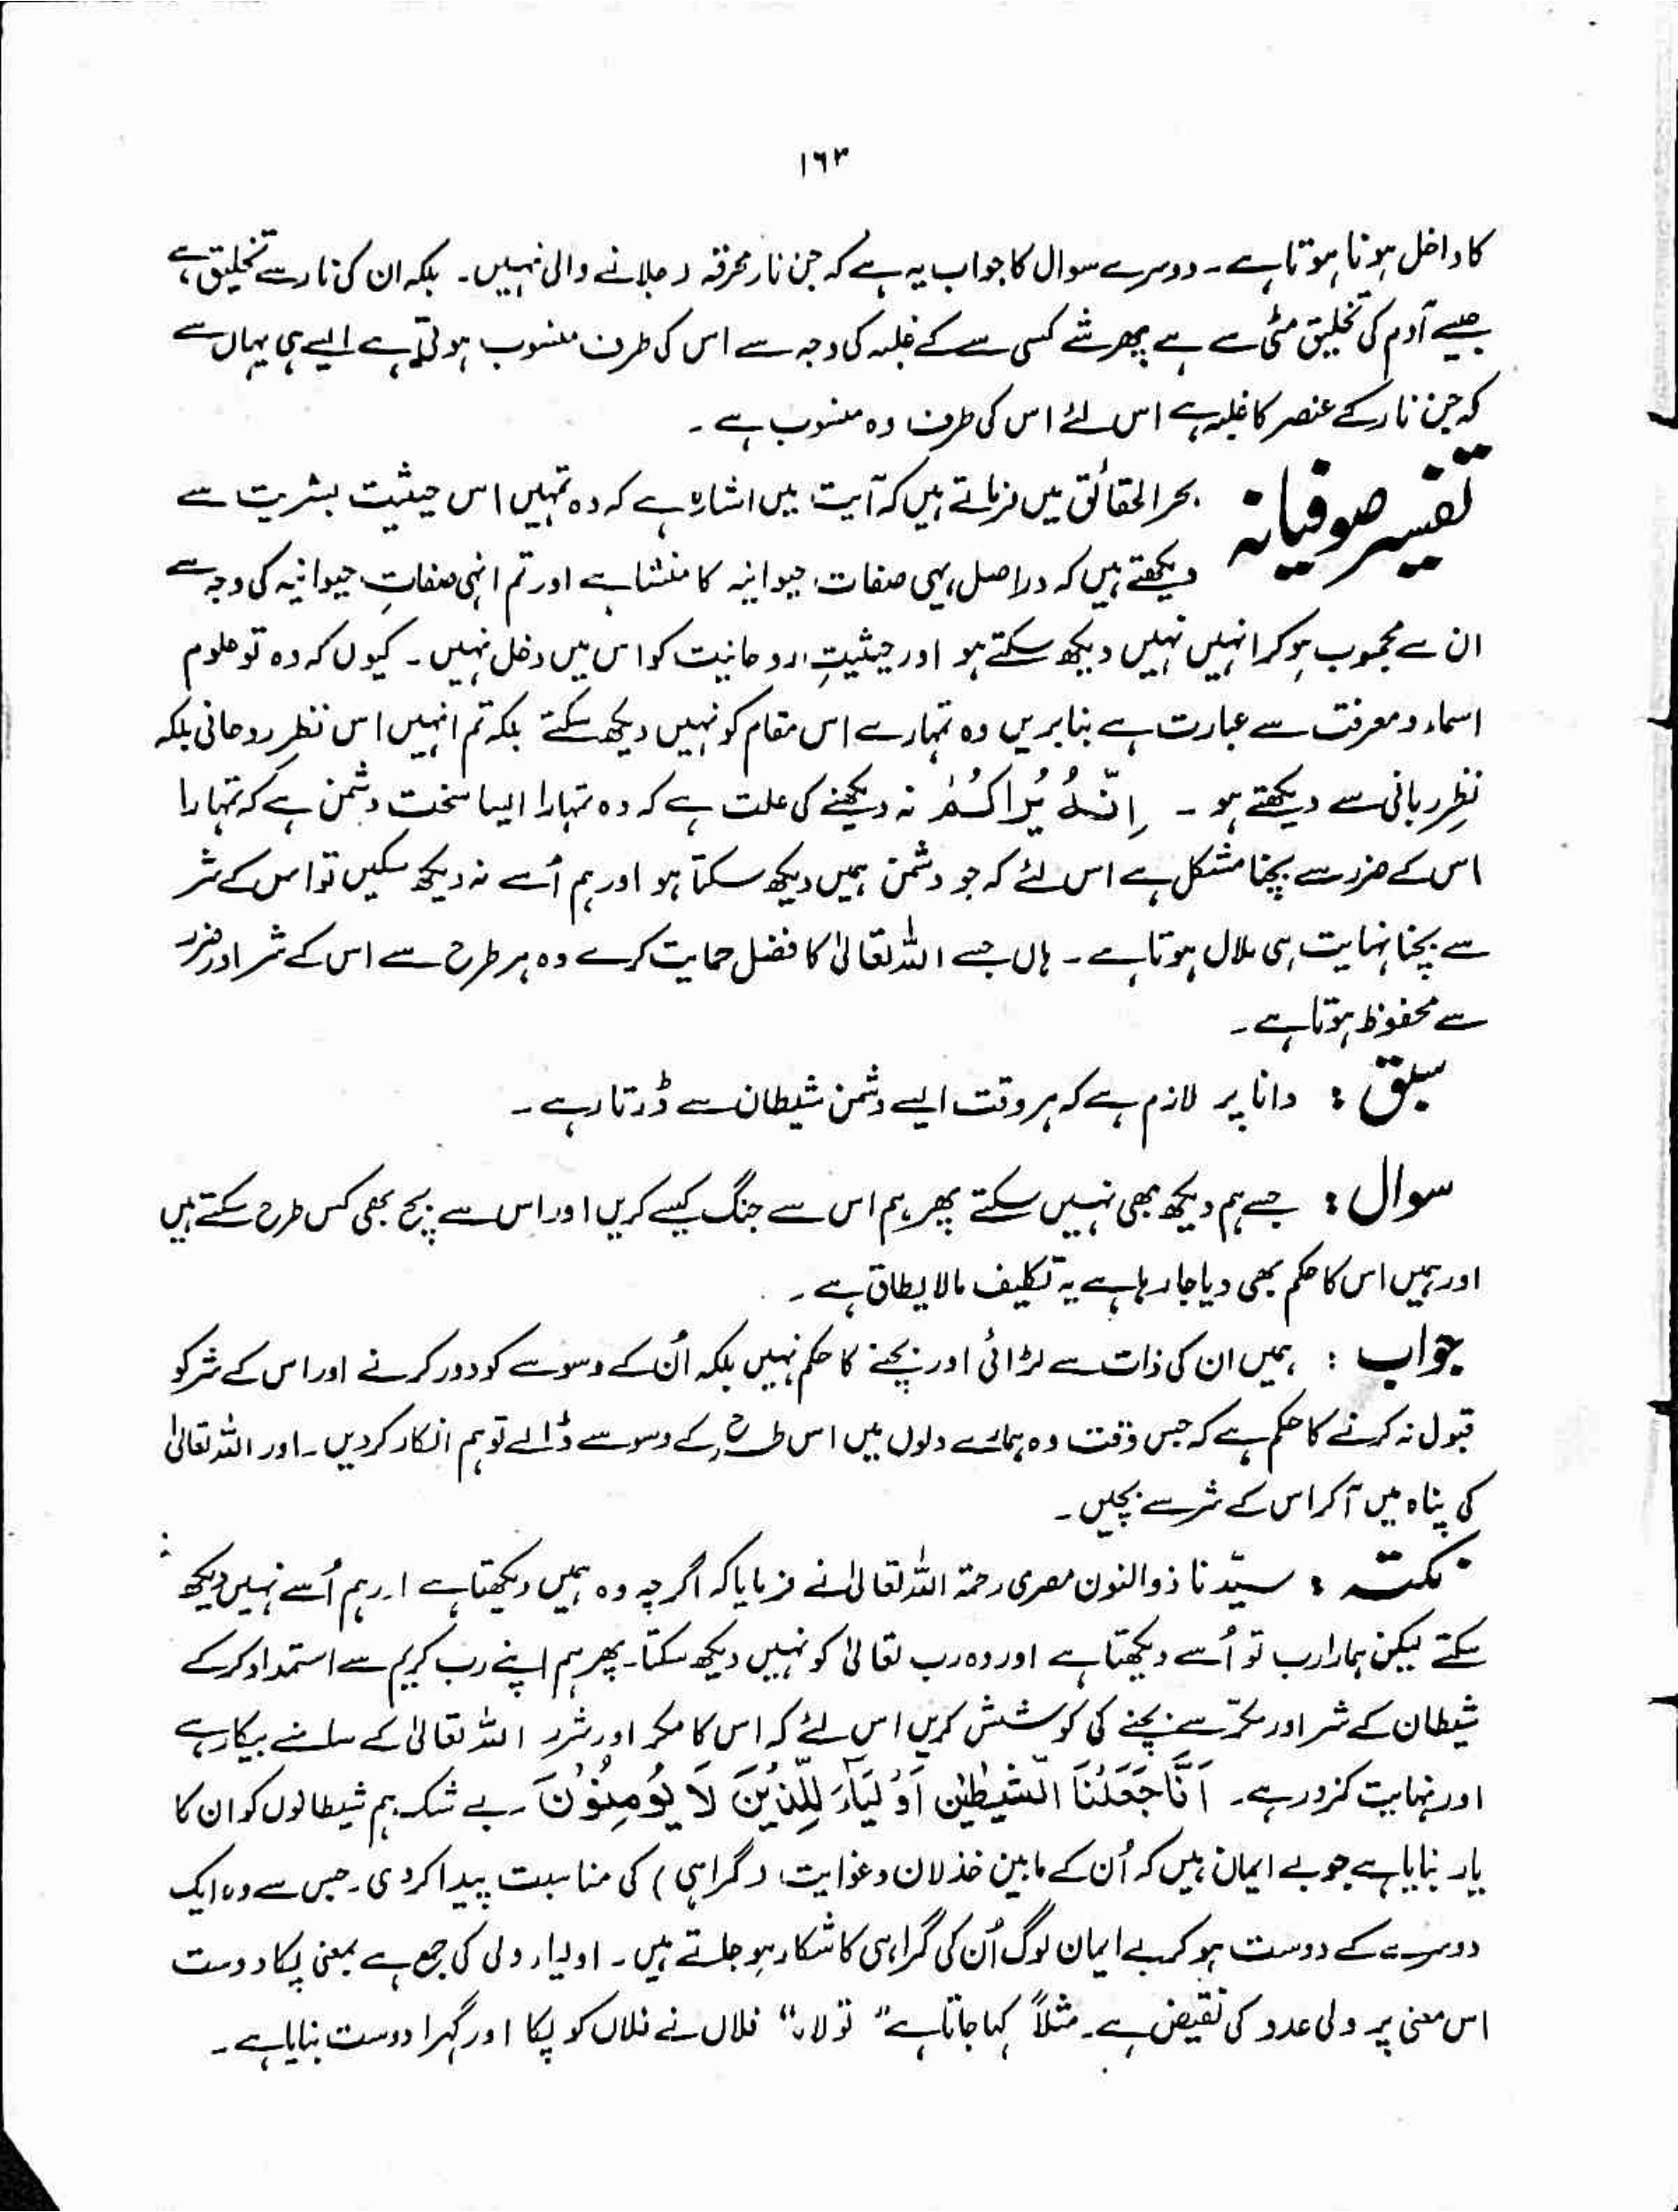 ۱۶۳
کا داخل ہونا ہوتا ہے۔ دوسرے سوال کا جواب یہ ہے کہ جن نار محرقہ ( جلانے والی نہیں۔ بلکہ ان کی نار سے تخلیق ہے،
جیسے آدم کی تخلیق مٹی سے ہے پھر شے کسی سے کے غلبہ کی وجہ سے اس کی طرف منسوب ہوتی ہے ایسے ہی یہاں سے
کہ جن نار کے عنصر کا غلبہ ہے اس لئے اس کی طرف وہ منسوب ہے۔
تفسیر صوفیانہ بحر الحقائق میں فرماتے ہیں کہ آیت میں اشارہ ہے کہ وہ تمہیں اس حیثیت بشریت سے
دیکھتے ہیں کہ دراصل یہی صفات حیوانیہ کا منشا ہے اور تم انہی صفاتِ حیوانیہ کی وجہ سے
ان سے محجوب ہو کر انہیں نہیں دیکھ سکتے ہو اور حیثیتِ روحانیت کو اس میں دخل نہیں۔ کیوں کہ وہ تو علوم
اسماء و معرفت سے عبارت ہے بنا بریں وہ تمہارے اس مقام کو نہیں دیکھ سکتے بلکہ تم انہیں اس نظرِ روحانی بلکہ
نظرِ ربانی سے دیکھتے ہو۔ اِنَّہٗ یَرَاکُمْ نہ دیکھنے کی علت ہے کہ وہ تمہارا ایسا سخت دشمن ہے کہ تمہارا
اس کے ضرر سے بچنا مشکل ہے اس لئے کہ جو دشمن ہمیں دیکھ سکتا ہو اور ہم اُسے نہ دیکھ سکیں تو اس کے شر
سے بچنا نہایت ہی ملال ہوتا ہے۔ ہاں جسے اللہ تعالیٰ کا فضل حمایت کرے وہ ہر طرح سے اس کے شر اور ضرر
سے محفوظ ہوتا ہے۔
سبق : دانا پر لازم ہے کہ ہر وقت ایسے دشمن شیطان سے ڈرتا رہے۔
سوال : جسے ہم دیکھ بھی نہیں سکتے پھر ہم اس سے جنگ کیسے کریں اور اس سے بچ بھی کس طرح سکتے ہیں
اور ہمیں اس کا حکم بھی دیا جا رہا ہے یہ تکلیف مالا یطاق ہے۔
جواب : ہمیں ان کی ذات سے لڑائی اور بچنے کا حکم نہیں بلکہ اُن کے وسوسے کو دور کرنے اور اس کے شر کو
قبول نہ کرنے کا حکم ہے کہ جس وقت وہ ہمارے دلوں میں اس طرح کے وسوسے ڈالے تو ہم انکار کر دیں۔ اور اللہ تعالیٰ
کی پناہ میں آ کر اس کے شر سے بچیں۔
نکتہ : سیّدنا ذوالنون مصری رحمۃ اللہ تعالیٰ نے فرمایا کہ اگرچہ وہ ہمیں دیکھتا ہے اور ہم اُسے نہیں دیکھ
سکتے لیکن ہمارا رب تو اُسے دیکھتا ہے اور وہ رب تعالیٰ کو نہیں دیکھ سکتا۔ پھر ہم اپنے رب کریم سے استمداد کر کے
شیطان کے شر اور مکر سے بچنے کی کوشش کریں اس لئے کہ اس کا مکر اور شرر اللہ تعالیٰ کے سامنے بیکار ہے
اور نہایت کمزور ہے۔ اَنَّا جَعَلْنَا الشَّیٰطِیْن اَوْلِیَآءَ لِلَّذِیْنَ لَا یُؤْمِنُوْنَ۔ بے شک ہم شیطانوں کو ان کا
یار بنایا ہے جو بے ایمان ہیں کہ اُن کے مابین خذلان و غوایت ( گمراہی ) کی مناسبت پیدا کر دی۔ جس سے وہ ایک
دوسرے کے دوست ہو کر بے ایمان لوگ اُن کی گمراہی کا شکار ہو جاتے ہیں۔ اولیاء ولی کی جمع ہے بمعنی پکا دوست
اس معنی پر ولی عدو کی نقیض ہے۔ مثلاً کہا جاتا ہے “ تولاہ” فلاں نے فلاں کو پکا اور گہرا دوست بنایا ہے۔